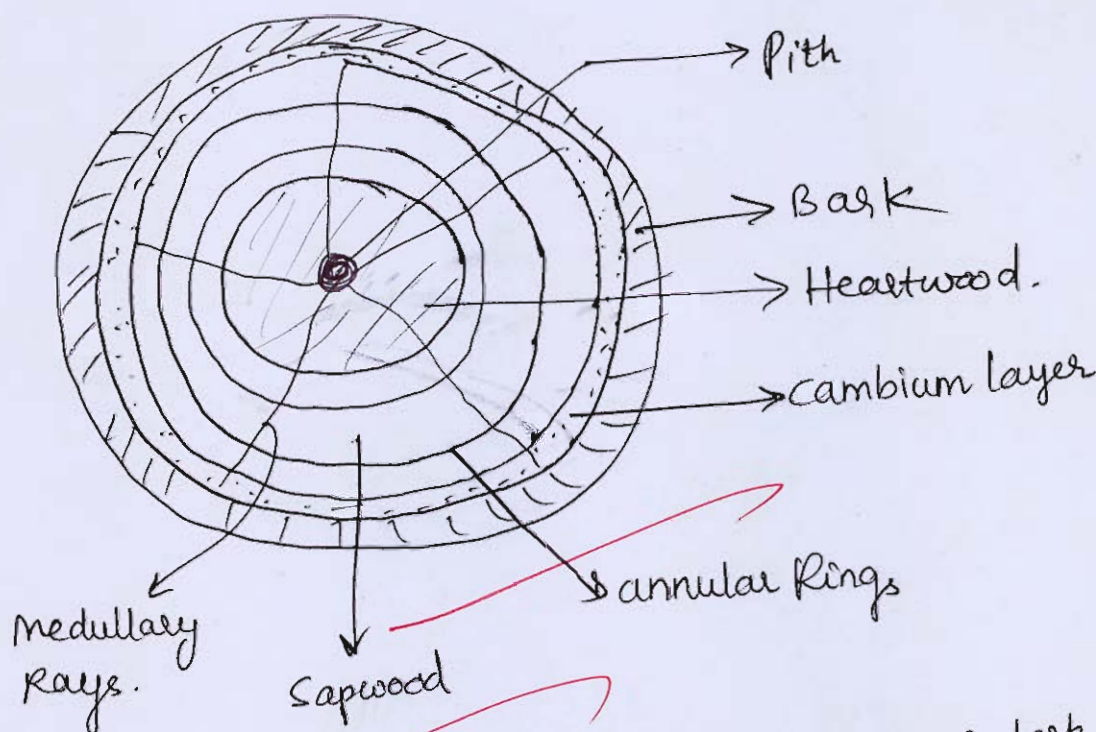 Pith
Bark
Heartwood.
Cambium layer
annular Rings
Medullary
Rays.
Sapwood